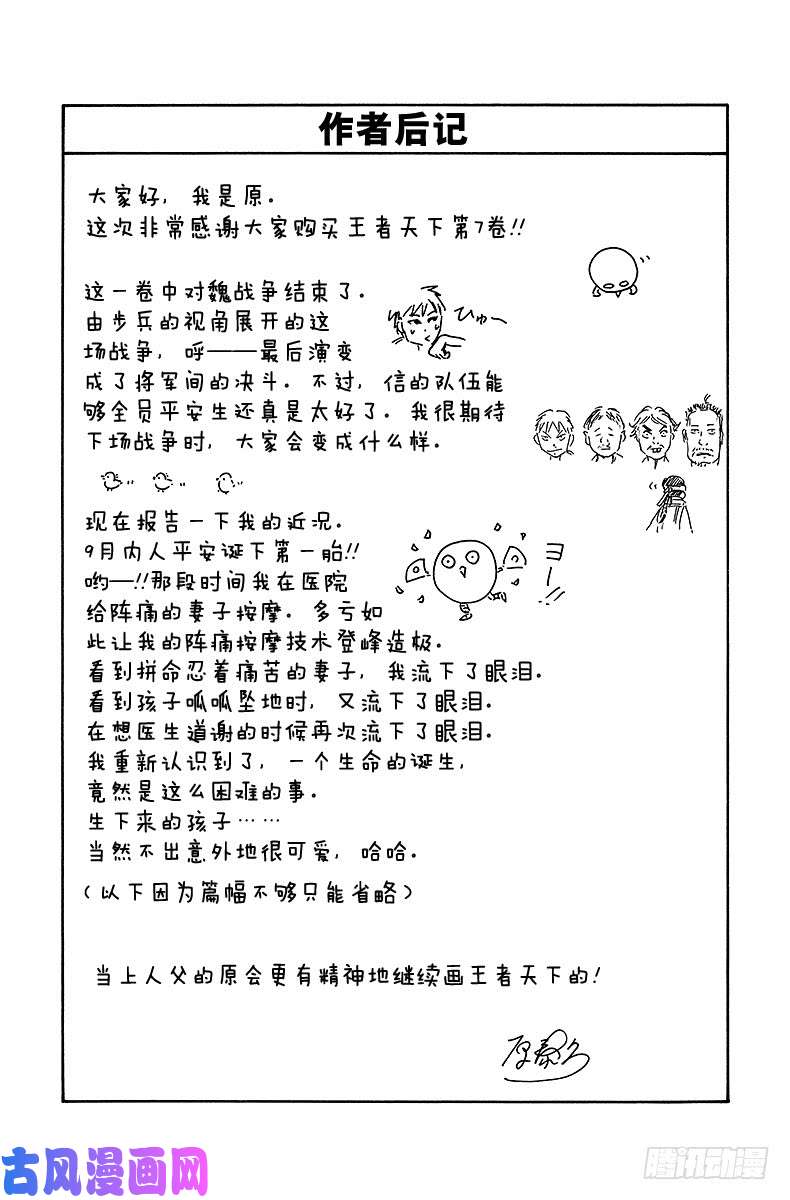 作者后记
大家好，我是原．
这次非常感谢大家购买王者天下第7卷!!
这一卷中对魏战争结束了．
由步兵的视角展开的这
场战争，呼——最后演变
成了将军间的决斗．不过，信的队伍能
够全员平安生还真是太好了．我很期待
下场战争时，大家会变成什么样．
ひゅー
现在报告一下我的近况．
9月内人平安诞下第一胎!!
哟—!!那段时间我在医院
给阵痛的妻子按摩．多亏如
此让我的阵痛按摩技术登峰造极．
看到拼命忍着痛苦的妻子，我流下了眼泪．
看到孩子呱呱坠地时，又流下了眼泪．
在想医生道谢的时候再次流下了眼泪．
我重新认识到了，一个生命的诞生，
竟然是这么困难的事．
生下来的孩子……
当然不出意外地很可爱，哈哈．
(以下因为篇幅不够只能省略)
ヨー!!
当上人父的原会更有精神地继续画王者天下的!
原泰久
古风漫画网
腾讯动漫